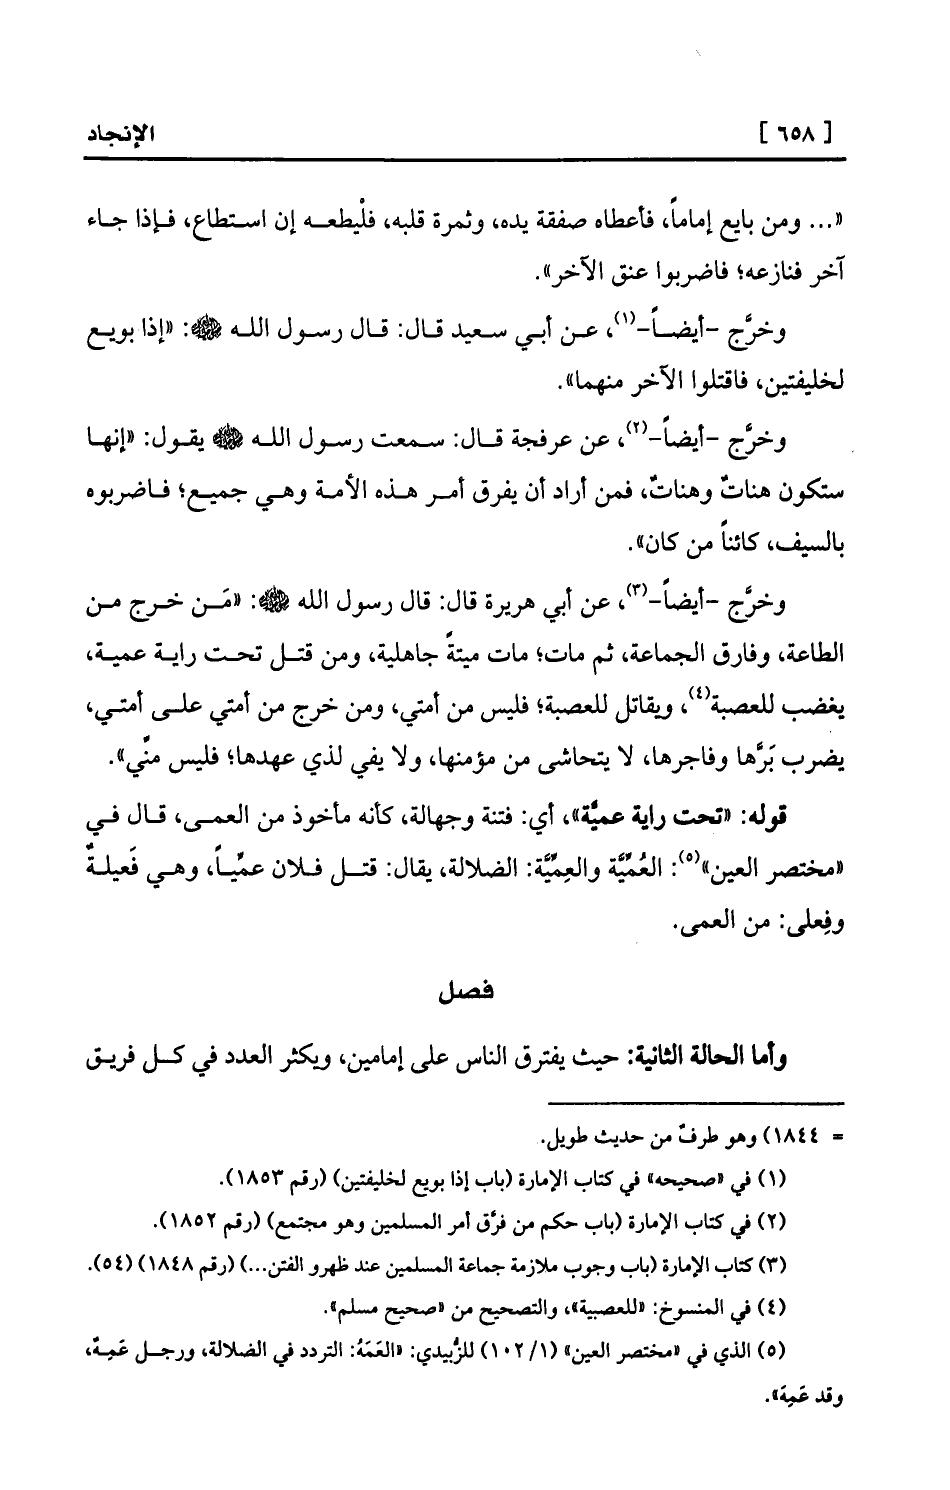 [ ٦٥٨ ] الإنجاد
«... ومن بايع إماماً، فأعطاه صفقة يده، وثمرة قلبه، فلْيطعه إن استطاع، فإذا جاء
آخر فنازعه؛ فاضربوا عنق الآخر».
وخرَّج -أيضاً-(١)، عن أبي سعيد قال: قال رسول الله ﷺ: «إذا بويع
لخليفتين، فاقتلوا الآخر منهما».
وخرَّج -أيضاً-(٢)، عن عرفجة قال: سمعت رسول الله ﷺ يقول: «إنها
ستكون هناتٌ وهناتٌ، فمن أراد أن يفرق أمر هذه الأمة وهي جميع؛ فاضربوه
بالسيف، كائناً من كان».
وخرَّج -أيضاً-(٣)، عن أبي هريرة قال: قال رسول الله ﷺ: «مَن خرج من
الطاعة، وفارق الجماعة، ثم مات؛ مات ميتةً جاهلية، ومن قتل تحت راية عمية،
يغضب للعصبة(٤)، ويقاتل للعصبة؛ فليس من أمتي، ومن خرج من أمتي على أمتي،
يضرب بَرَّها وفاجرها، لا يتحاشى من مؤمنها، ولا يفي لذي عهدها؛ فليس منِّي».
قوله: «تحت راية عميَّة»، أي: فتنة وجهالة، كأنه مأخوذ من العمى، قال في
«مختصر العين»(٥): العُمِّيَّة والعِمِّيَّة: الضلالة، يقال: قتل فلان عمِّياً، وهي فَعيلةٌ
وفِعلى: من العمى.
فصل
وأما الحالة الثانية: حيث يفترق الناس على إمامين، ويكثر العدد في كل فريق
= ١٨٤٤) وهو طرفٌ من حديث طويل.
(١) في «صحيحه» في كتاب الإمارة (باب إذا بويع لخليفتين) (رقم ١٨٥٣).
(٢) في كتاب الإمارة (باب حكم من فرَّق أمر المسلمين وهو مجتمع) (رقم ١٨٥٢).
(٣) كتاب الإمارة (باب وجوب ملازمة جماعة المسلمين عند ظهرو الفتن...) (رقم ١٨٤٨) (٥٤).
(٤) في المنسوخ: «للعصبية»، والتصحيح من «صحيح مسلم».
(٥) الذي في «مختصر العين» (١/ ١٠٢) للزُّبيدي: «العَمَهُ: التردد في الضلالة، ورجل عَمِهٌ،
وقد عَمِهَ».